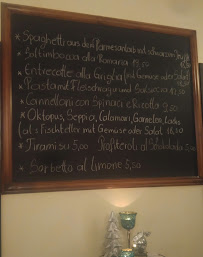 * Spaghetti aus dem Parmesanlaib mit schwarzem Trüffel
* Saltimbocca alla Romana 19,50
* Entrecotte alla Griglia mit Gemüse oder Salat
* Pasta mit Fleischragu und Salsiccia
* Cannelloni con Spinaci e Ricotta 9,50
* Oktopus, Seppia, Calamari, Garnelen, Lachs
als Fischteller mit Gemüse oder Salat 18,50
* Tiramisu 5,00 Profiteroli al Schokolade 5,00
* Sorbetto al limone 5,50